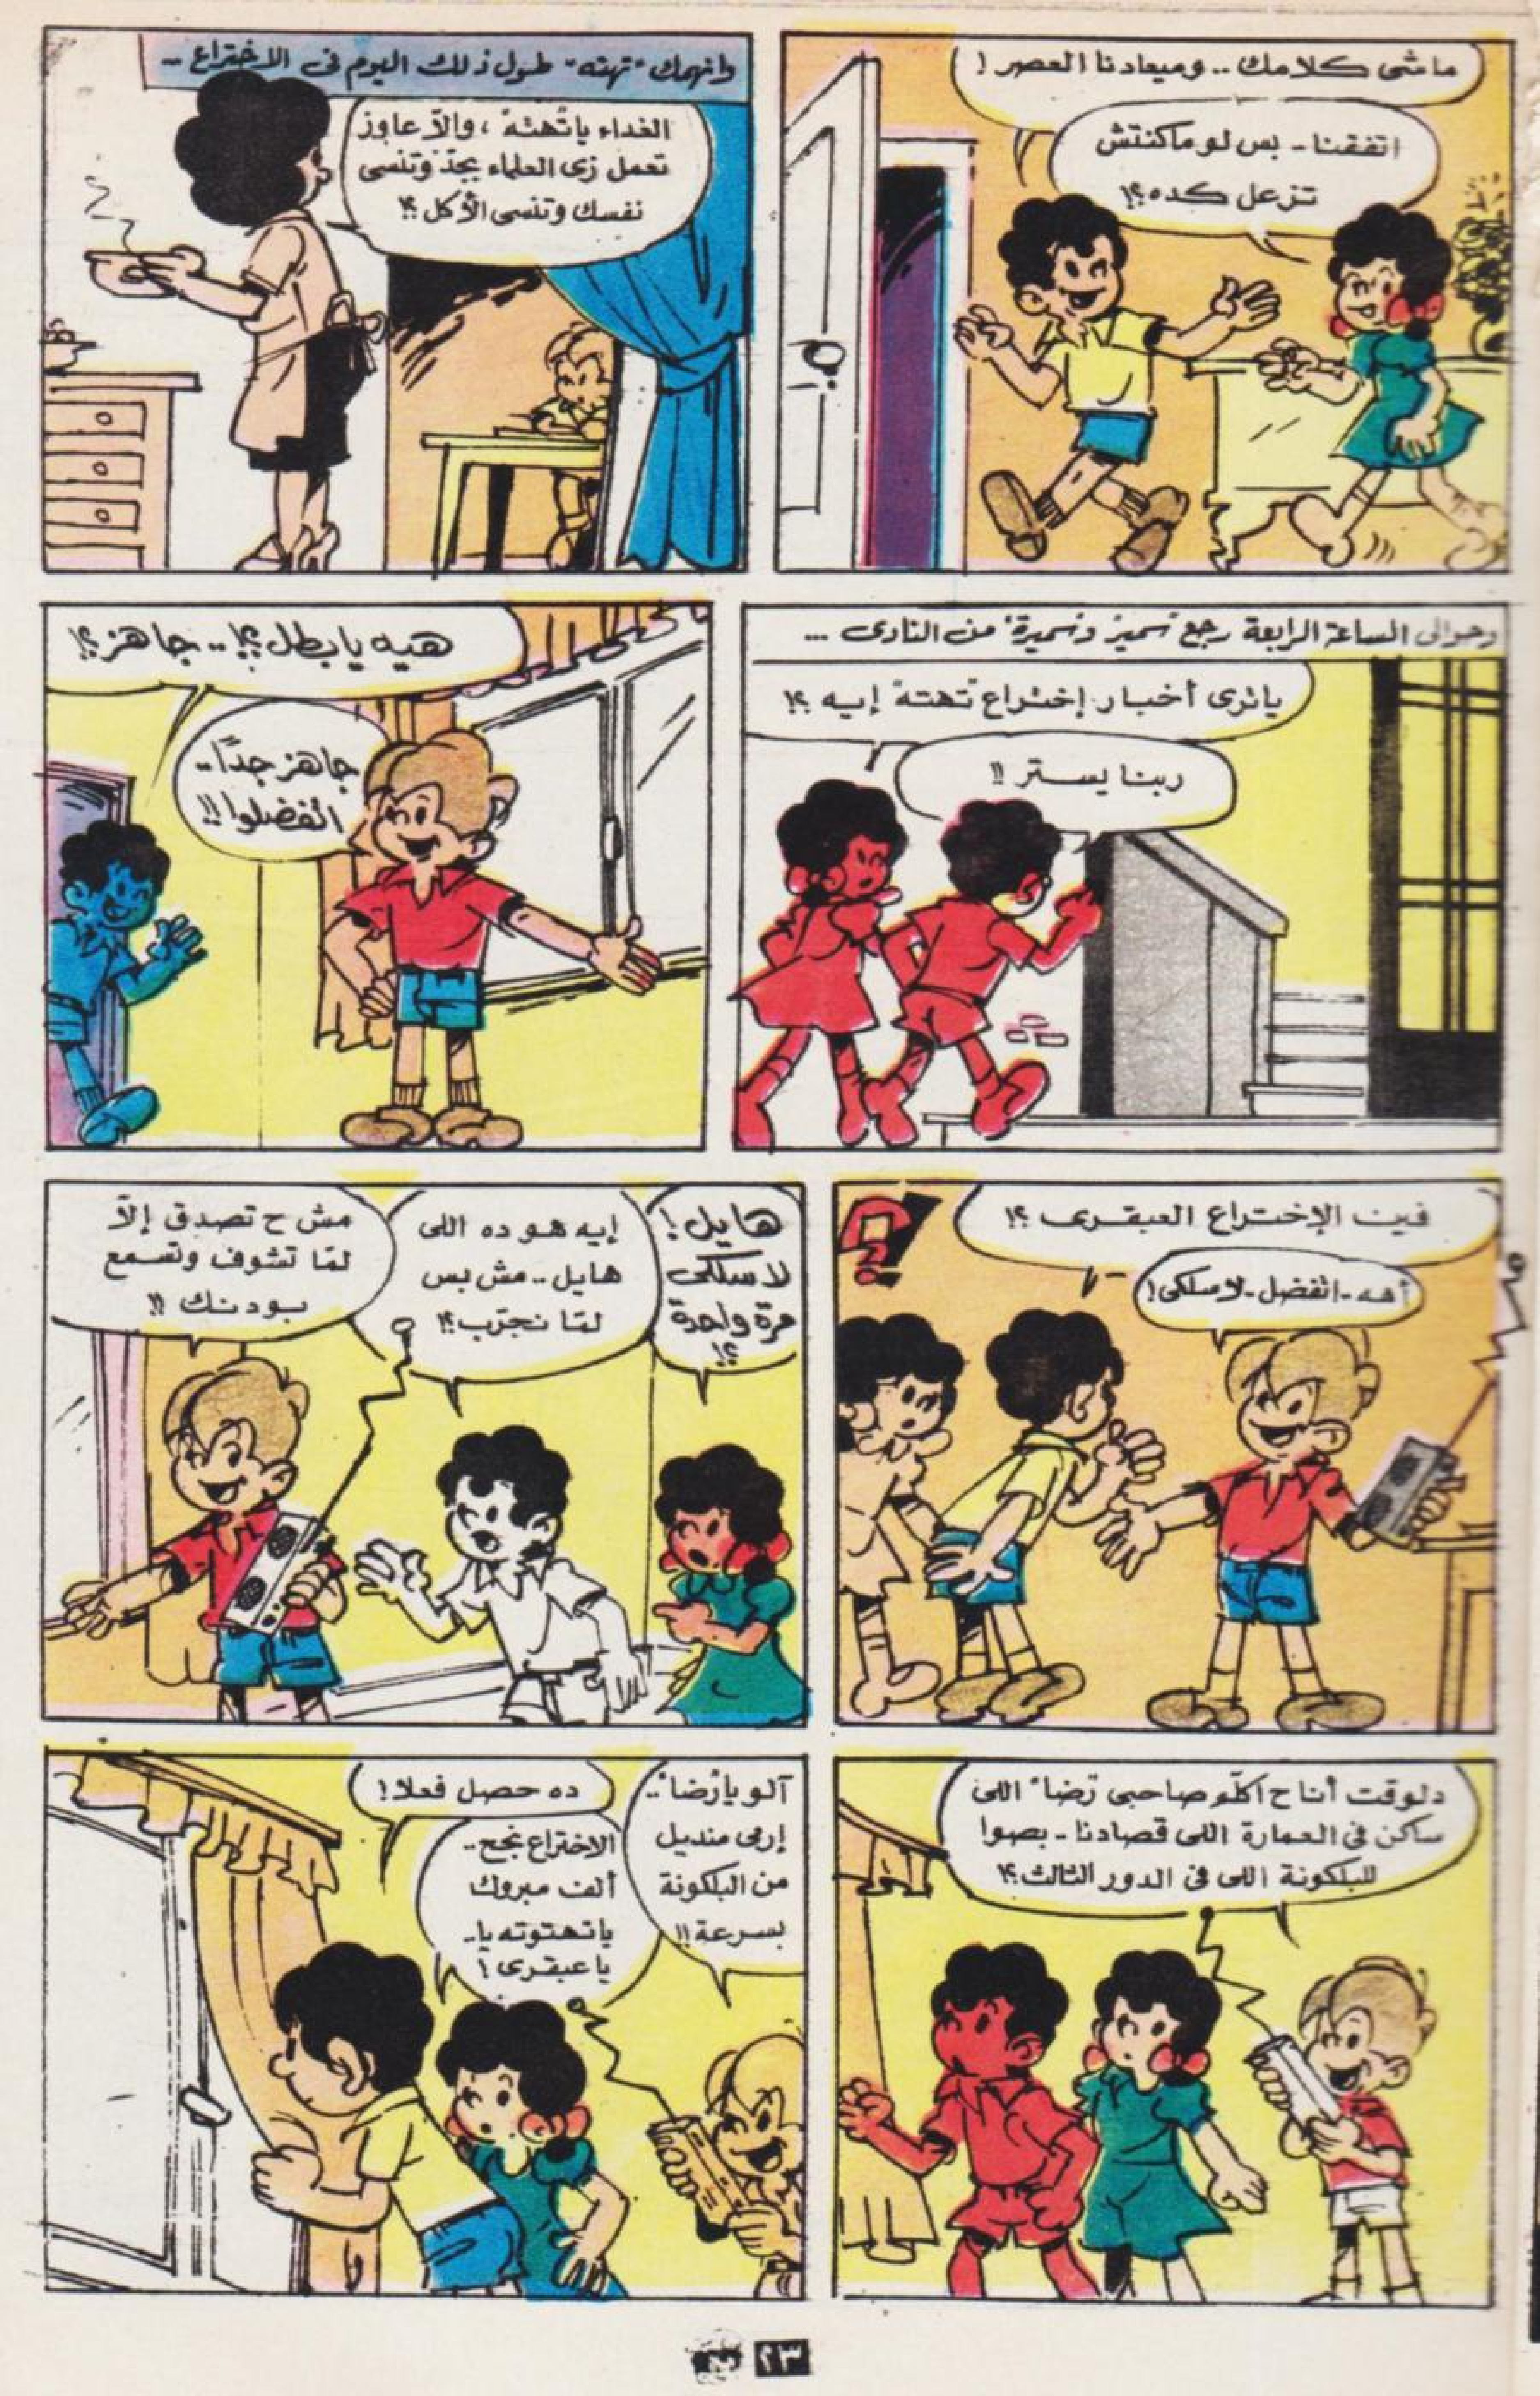 ماشى كلامك .. وميعادنا العصر !
اتفقنا - بس لو ماكنتش
تزعل كده ؟!
وانهمك "تهته" طول ذلك اليوم فى الاختراع ..
الغداء ياتهته ، والاّ عاوز
تعمل زى العلماء بجدّ وتنسى
نفسك وتنسى الأكل ؟!
وحوالى الساعة الرابعة رجع "سمير وسميرة" من النادى ...
ياترى أخبار إختراع "تهته" إيه ؟!
ربنا يستر !!
هيه يابطل ؟! .. جاهز ؟!
جاهز جدًا ..
اتفضلوا !!
فين الإختراع العبقرى ؟!
أهه - اتفضل - لاسلكى !
هايل !
لاسلكى
مرة واحدة
؟!
إيه هو ده اللى
هايل .. مش بس
لمّا نجرّب ؟!
مش ح تصدق إلاّ
لمّا تشوف وتسمع
بودنك !!
دلوقت أنا ح اكلّم صاحبى "رضا" اللى
ساكن فى العمارة اللى قصادنا - بصوا
للبلكونة اللى فى الدور الثالث ؟!
آلو يا"رضا" ..
إرمى منديل
من البلكونة
بسرعة !!
ده حصل فعلا !
الاختراع نجح ..
ألف مبروك
ياتهتوته يا ..
ياعبقرى !
٢٣